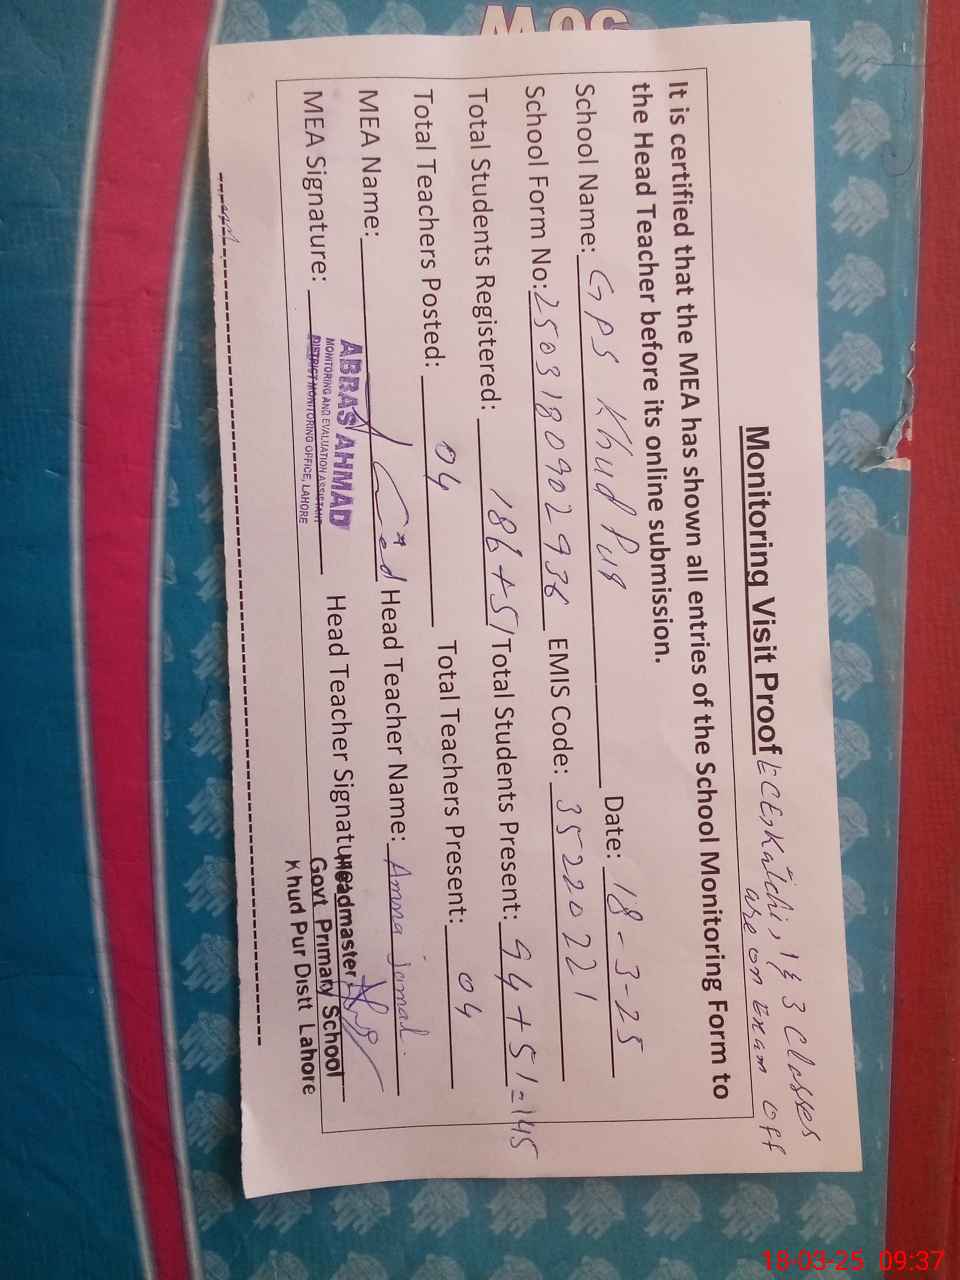 Monitoring Visit Proof ECE, Katchi, 1 & 3 Classes
are on Exam Off
It is certified that the MEA has shown all entries of the School Monitoring Form to
the Head Teacher before its online submission.
School Name: GPS Khud Pur Date: 18-3-25
School Form No: 2503180902936 EMIS Code: 35220221
Total Students Registered: 186+51 Total Students Present: 94+51=145
Total Teachers Posted: 04 Total Teachers Present: 04
MEA Name: Head Teacher Name: Amna Jamal.
MEA Signature: Head Teacher Signature:
ABBAS AHMAD
MONITORING AND EVALUATION ASSISTANT
DISTRICT MONITORING OFFICE, LAHORE
Headmaster
Govt Primary School
Khud Pur Distt Lahore
18-03-25 09:37